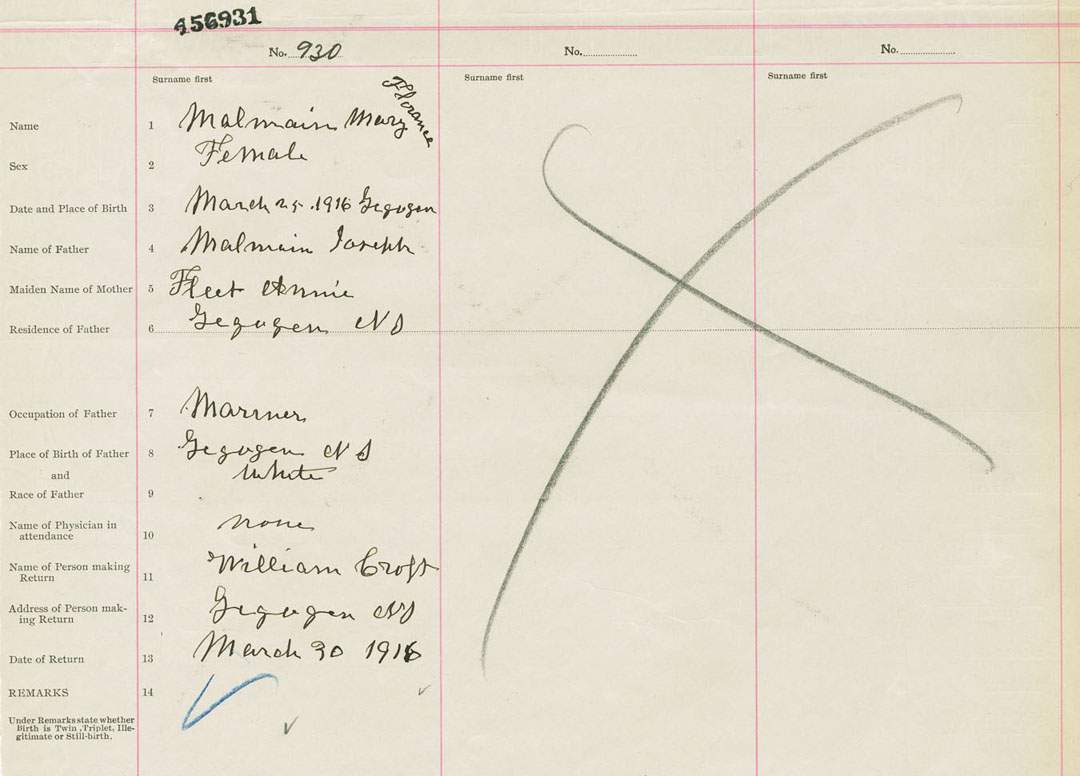 456931
No. 930 No. No.
Surname first Surname first Surname first
Florance
Name 1 Malmain Mary
Sex 2 Female
Date and Place of Birth 3 March 25. 1916 Gegogen
Name of Father 4 Malmain Joseph
Maiden Name of Mother 5 Fleet Annie
Residence of Father 6 Gegogen NS
Occupation of Father 7 Marrner
Place of Birth of Father 8 Gegogen NS
and White
Race of Father 9
Name of Physician in
attendance 10 none
Name of Person making
Return 11 William Croft
Address of Person mak-
ing Return 12 Gegogen NS
Date of Return 13 March 30 1916
REMARKS 14
Under Remarks state whether
Birth is Twin, Triplet, Ille-
gitimate or Still-birth.